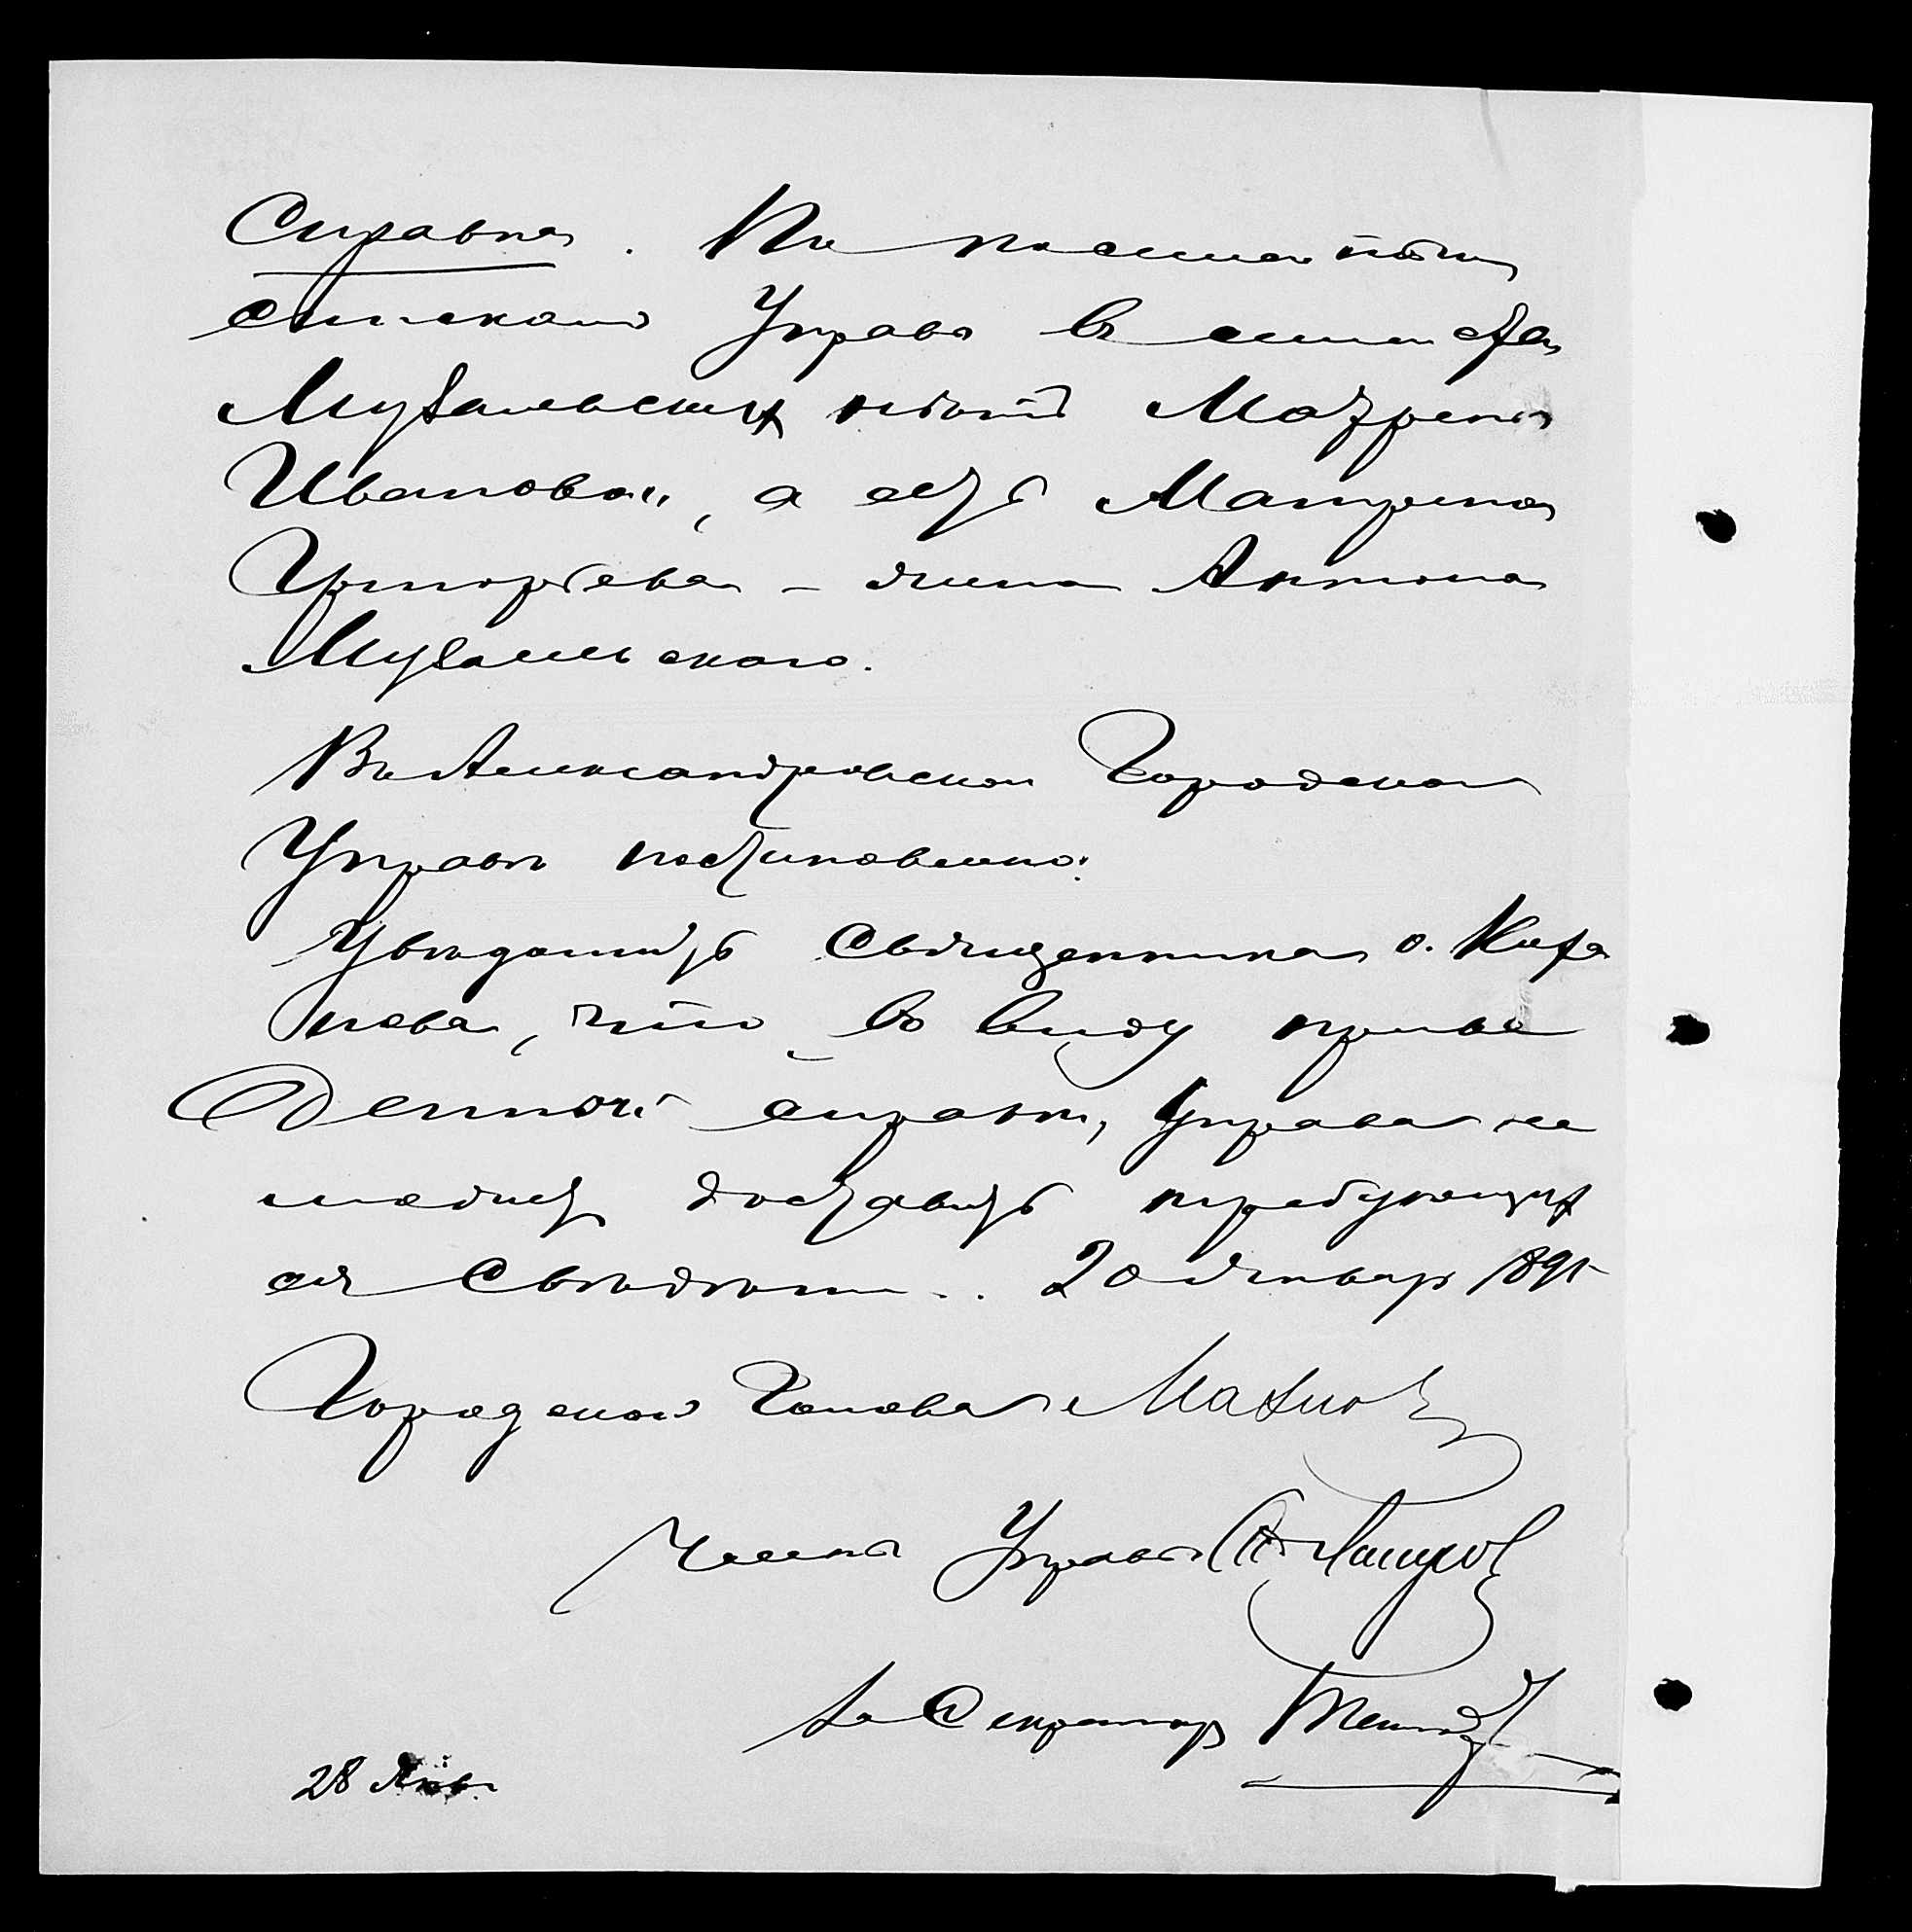 Справка. По посемейнымъ
спискамъ Управы въ семействѣ
Музалевскихъ нѣтъ Матрены
Ивановой, а есть Матрена
Григорьева – жена Антона
Музалевскаго.
Въ Александровской Городской
Управѣ постановлено:
Увѣдомить Священника о.
что въ виду приве
денной справки, Управа не
можетъ доставить требующих
ся Свѣдѣній. 20 Января 189
Городской Голова
Членъ Управы
За Секретаря
28 Янв.